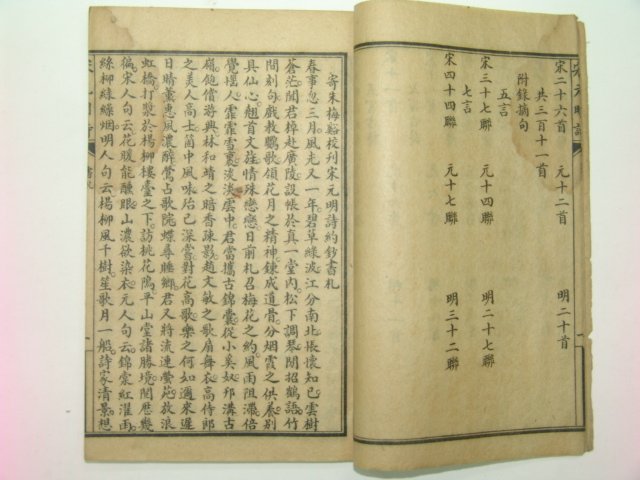 宋二十六首　元十二首　明二十首
共三百十一首
附錄摘句
五言
宋三十七聯　元十四聯　明二十七聯
七言
宋四十四聯　元十七聯　明三十二聯
寄朱梅谿校刊宋元明詩約鈔書札
春事怱三月風光又一年碧草綠波江分南北悵懷知己雲樹
蒼茫聞君棹赴廣陵設帳於真一堂內松下調琴閒招鶴語竹
間刻句戲教鸚歌領花月之精神鍊成道骨分烟霞之供養別
具仙心翹首文葑情殊戀戀日前札召梅花之約風雨阻濃倍
覺懼人霏霏雪裏淡淡雲中君當攜古錦囊從小奚奴邗溝古
嶺飽償游興林和靖之暗香疎影趙文敏之歌扇舞衣高侍郎
之美人高士箇中風味詠殆已深嘗對花高樂樂之何如邇來遲
日晴薰惠風濃醉鶯占歌院蝶尋睡鄉君又將流連鶯苑放浪
虹橋打槳於楊柳樓臺之下訪桃花隝平山堂諸勝境閒歷幾
徧宋人句云花暖能醺眼山濃欲染衣元人句云錦棠紅濯雨
絲柳綠繰烟明人句云楊柳風千樹笙歌月一般詩家清景想